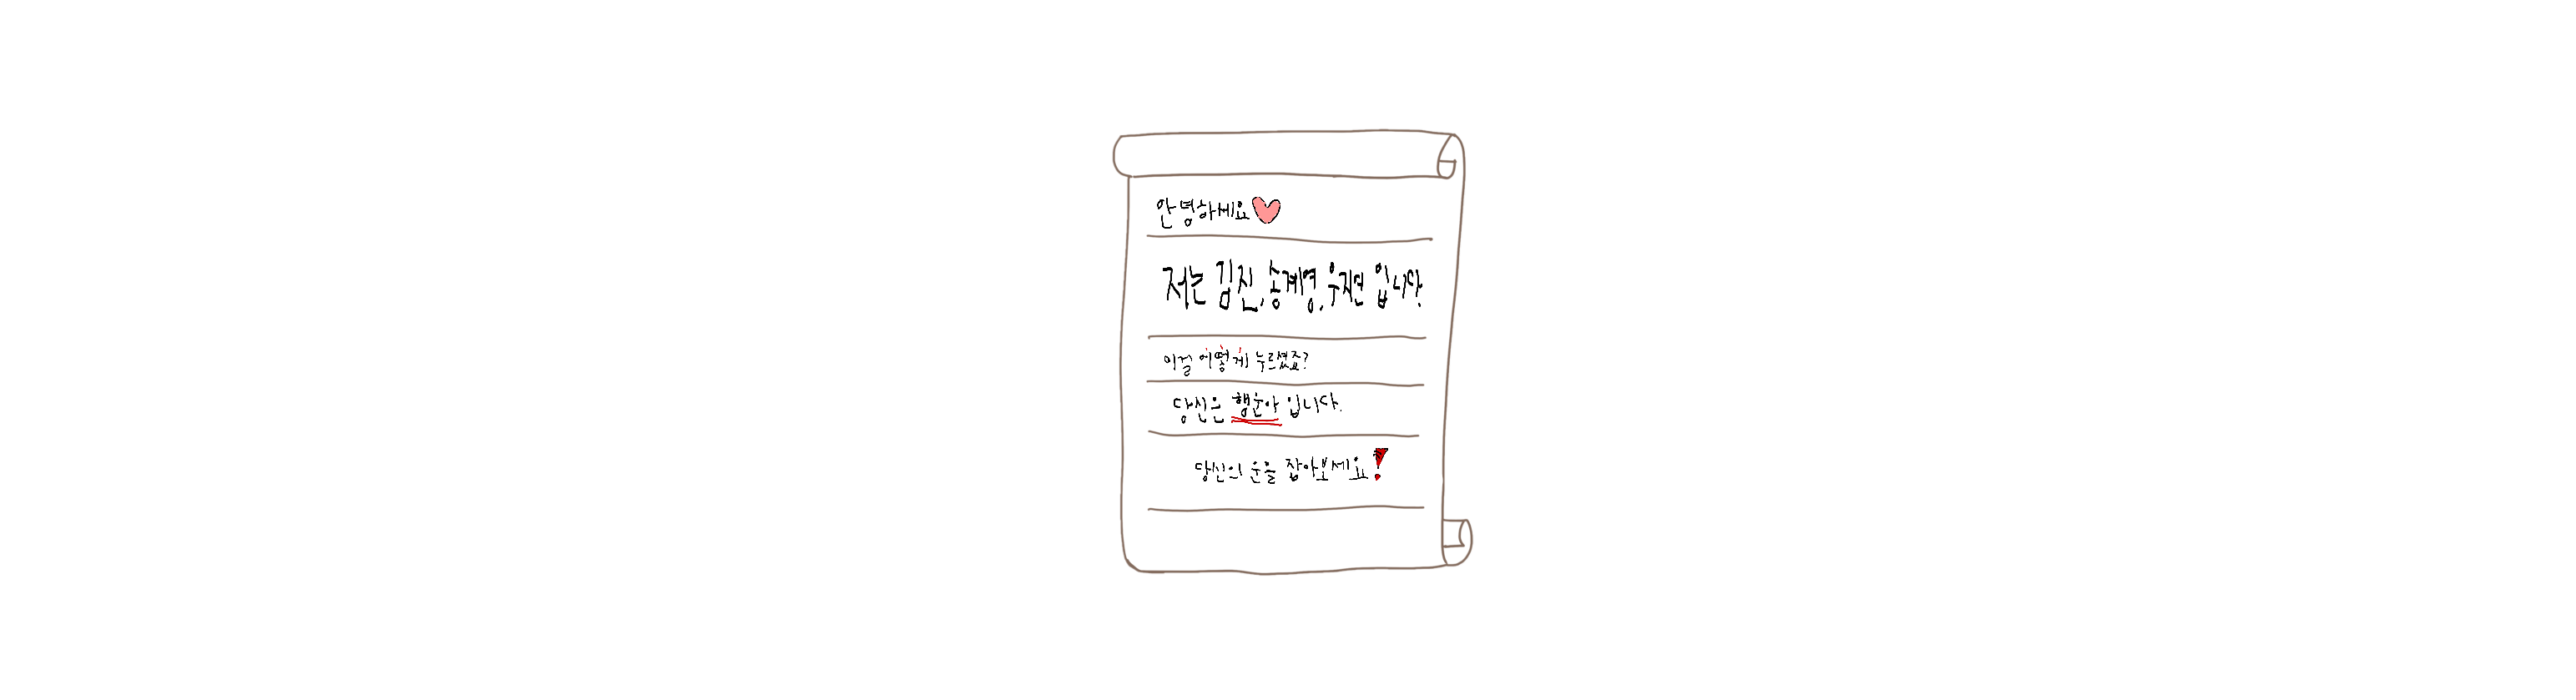 안녕하세요
저는 김진, 송계영, 우지연 입니다.
이걸 어떻게 누르셨죠?
당신은 행운아 입니다.
당신의 운을 잡아보세요!